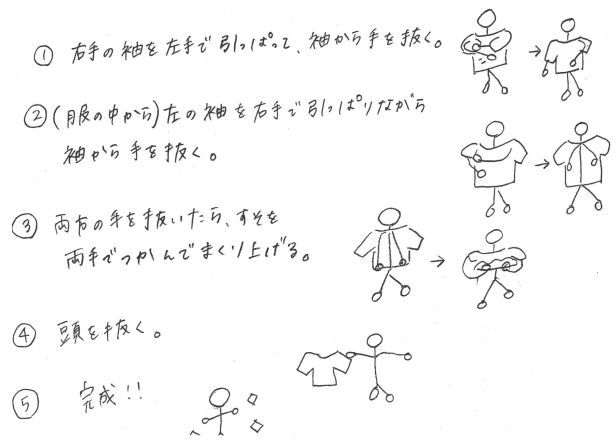 ① 右手の袖を左手で引っぱって、袖から手を抜く。
② (服の中から)左の袖を右手で引っぱりながら
袖から手を抜く。
③ 両方の手を抜いたら、すそを
両手でつかんでまくり上げる。
④ 頭を抜く。
⑤ 完成!!